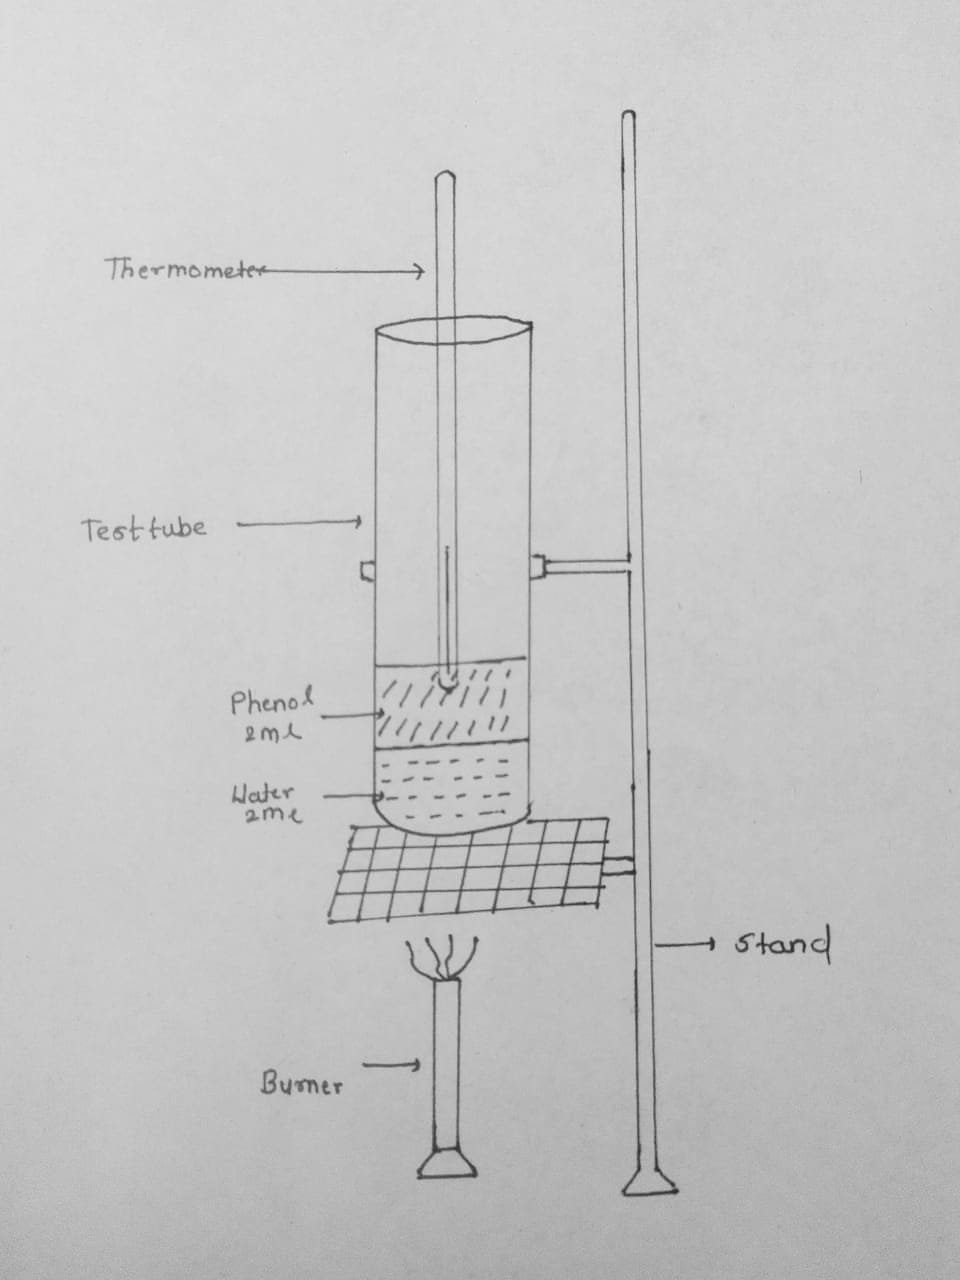 Thermometer
Test tube
Phenol
2ml
Water
2ml
stand
Burner